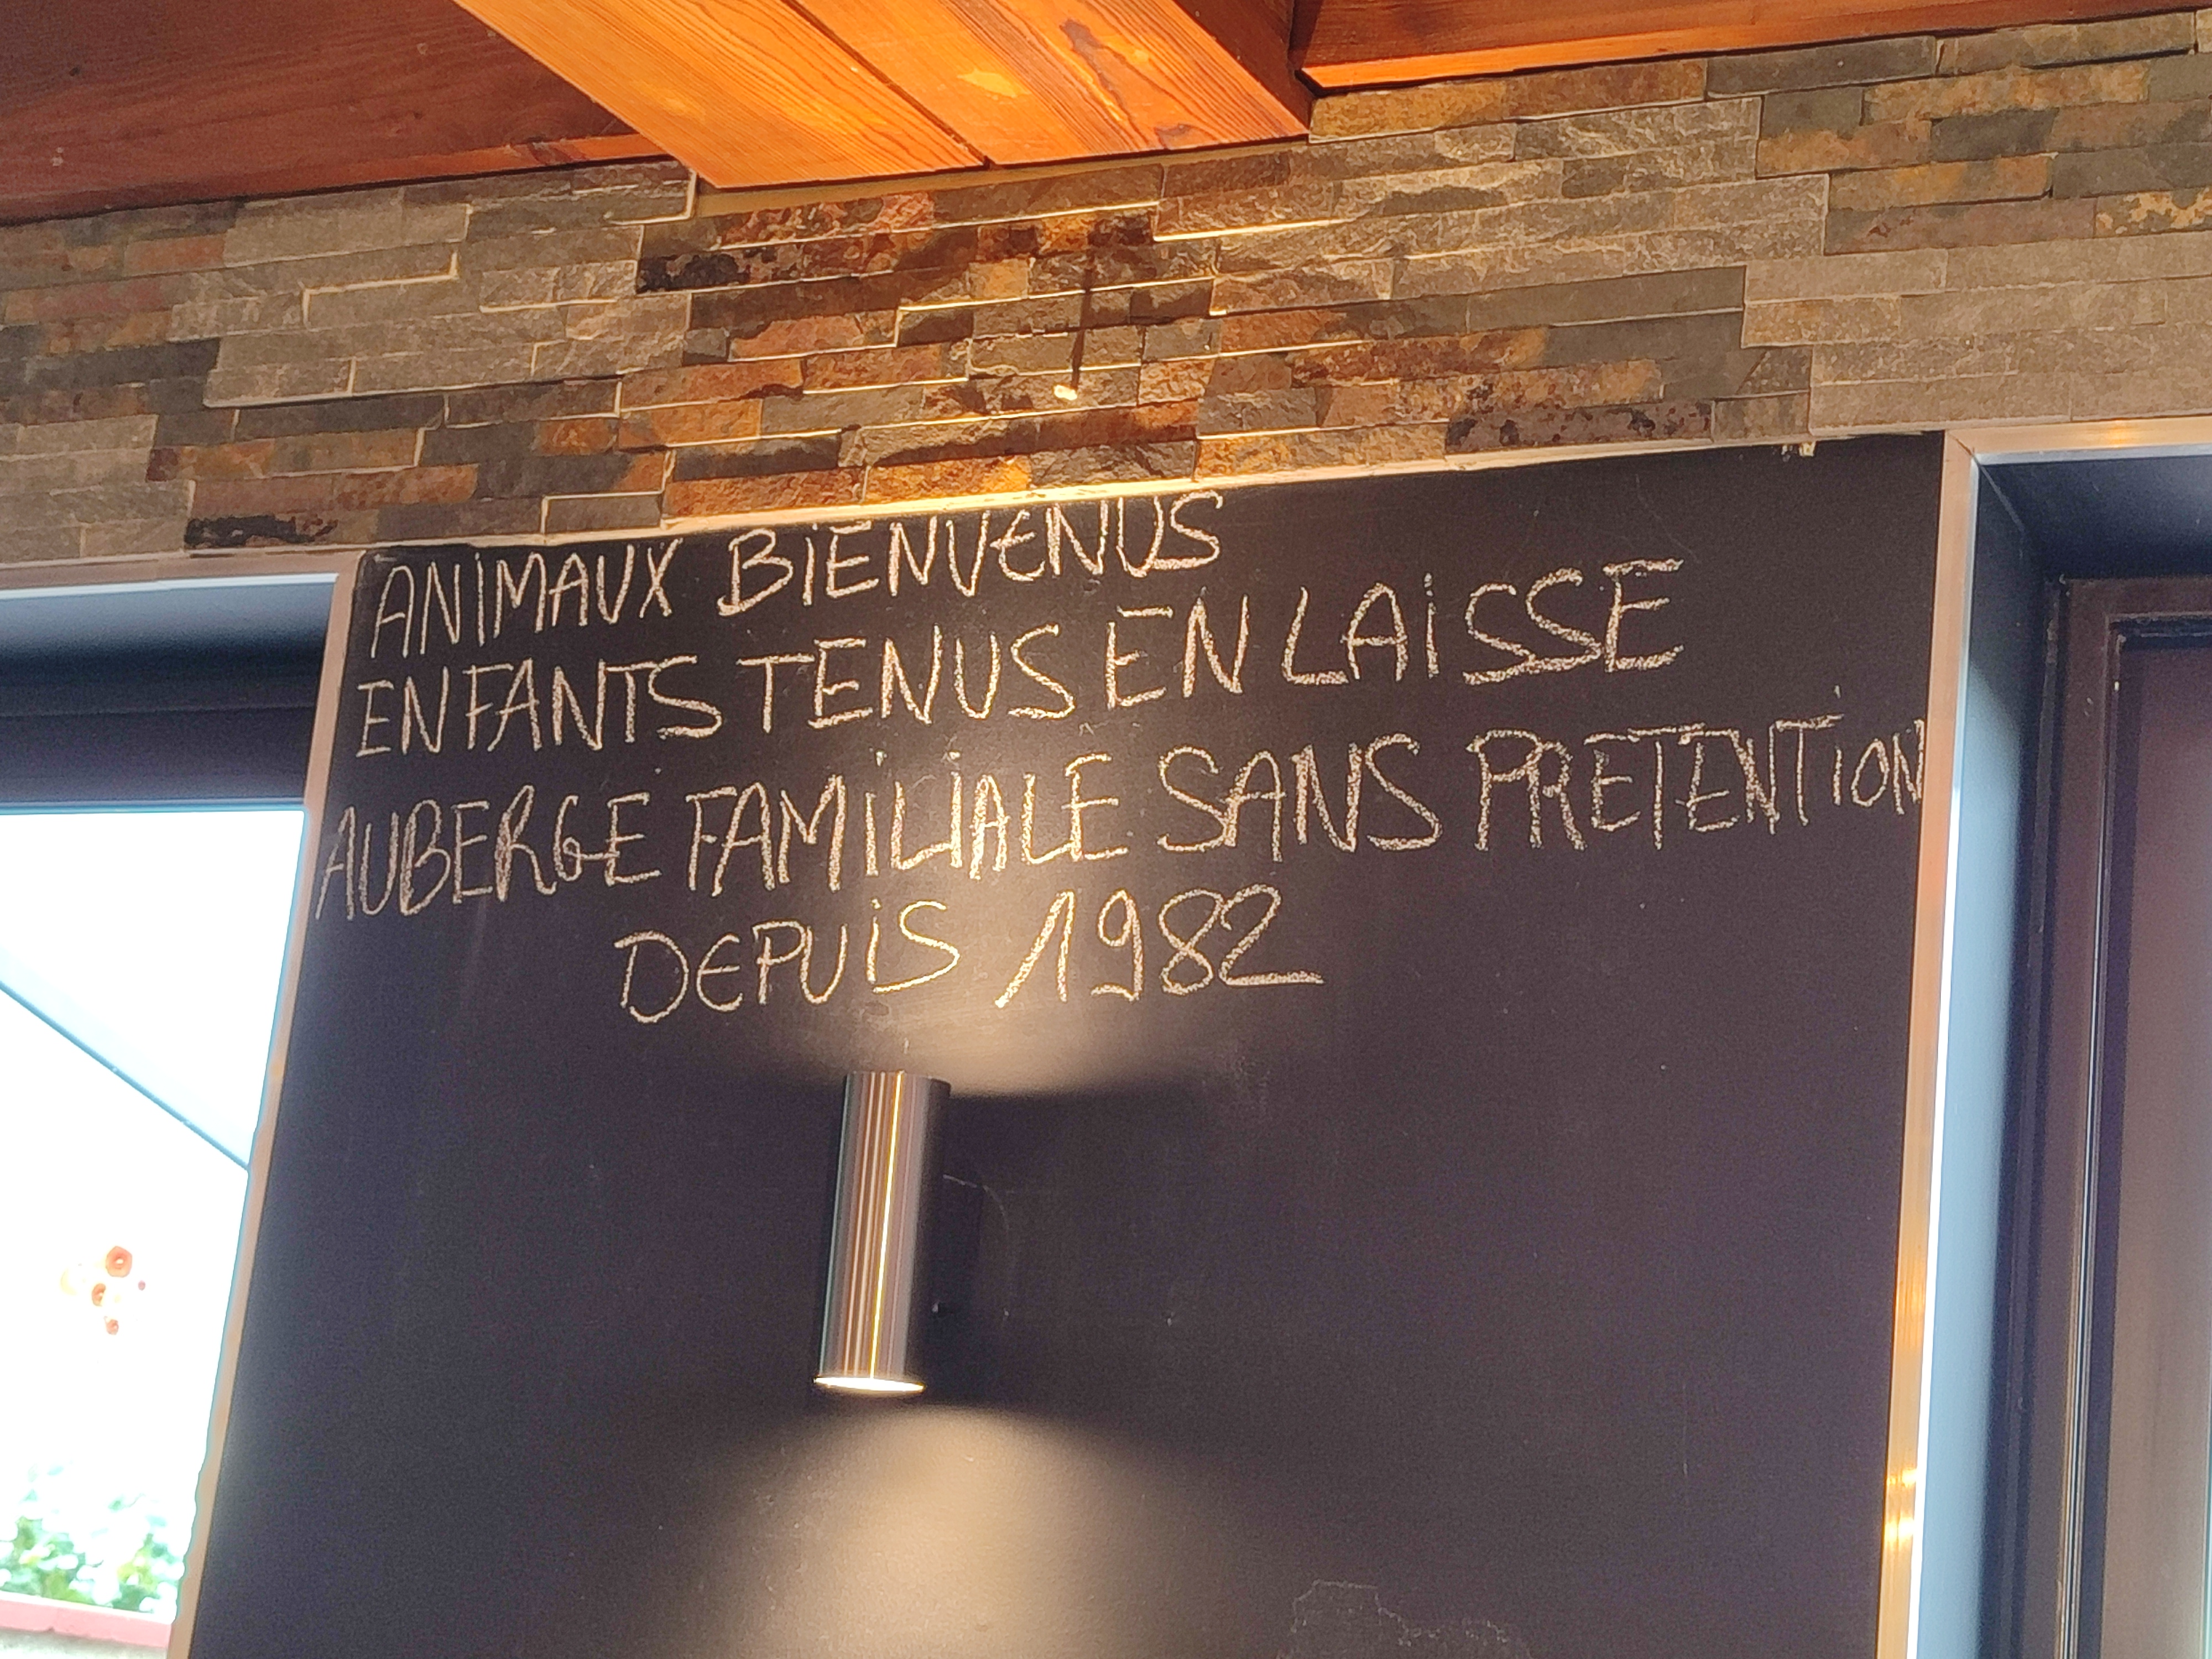 ANIMAUX BIENVENUS
ENFANTS TENUS EN LAISSE
AUBERGE FAMILIALE SANS PRETENTION
DEPUIS 1982